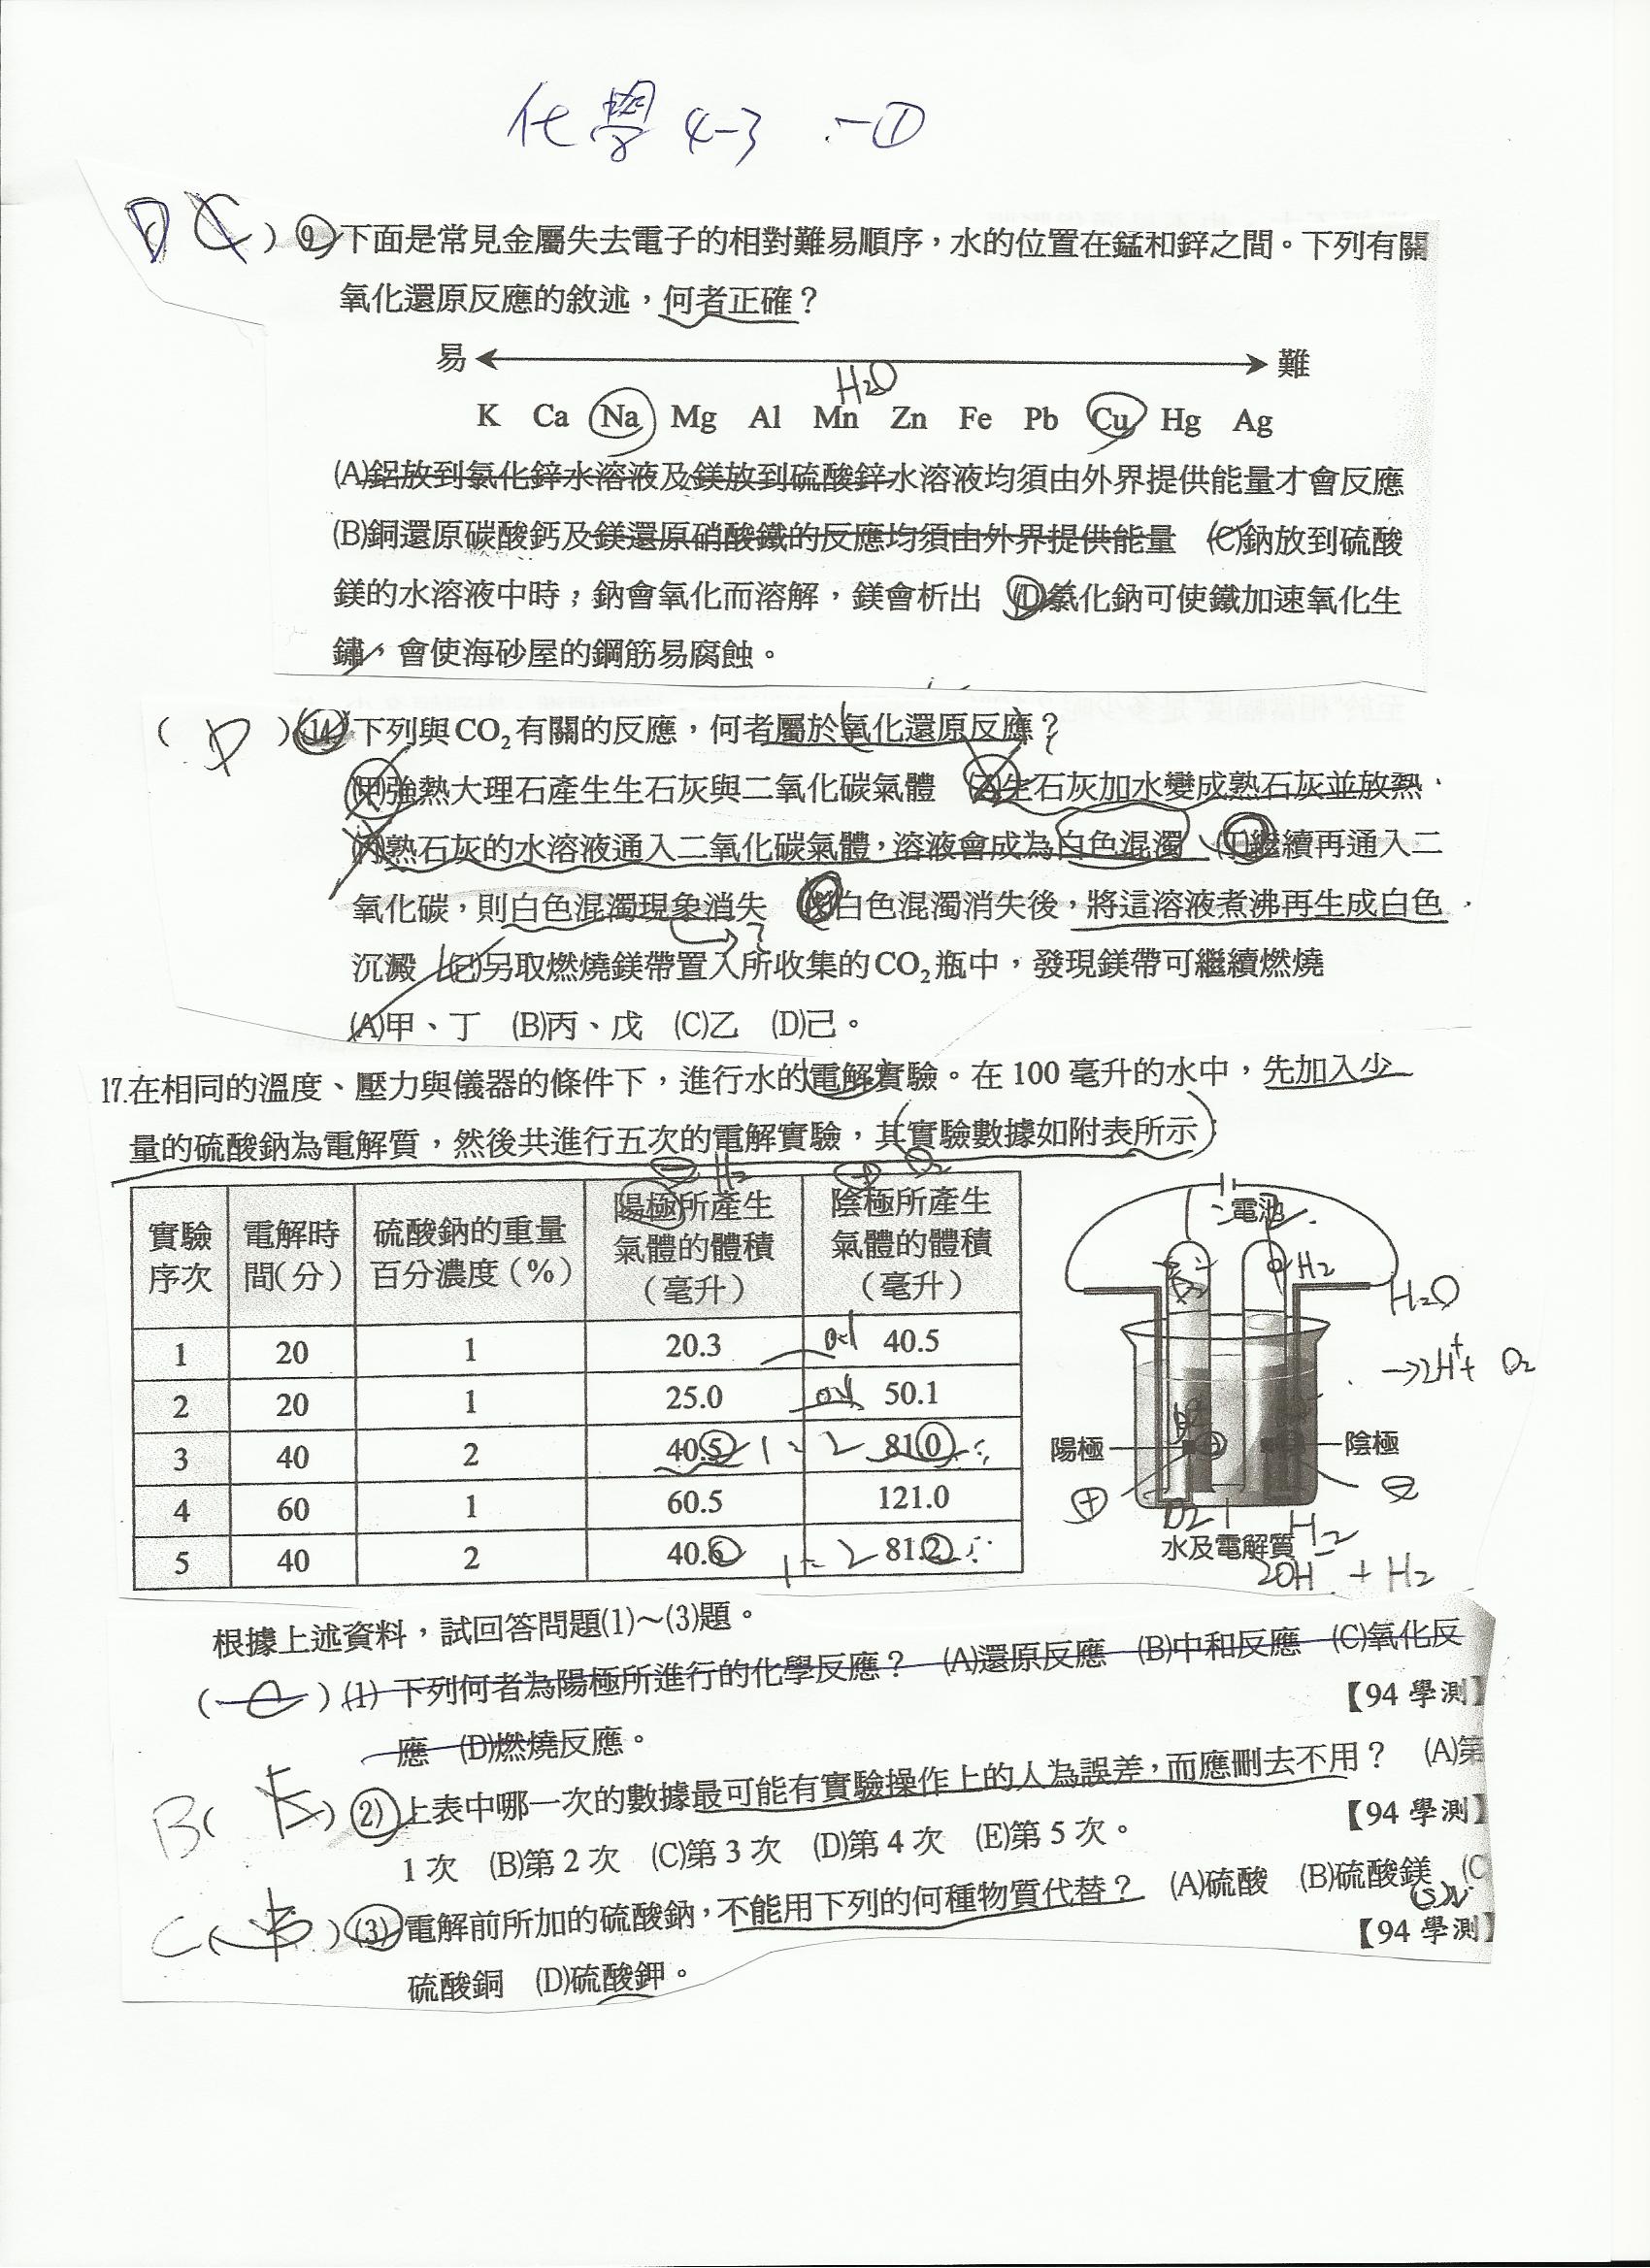 化學 4-3 :-①
D C ) 9. 下面是常見金屬失去電子的相對難易順序，水的位置在錳和鋅之間。下列有關
氧化還原反應的敘述，何者正確？
易 難
H₂O
K Ca Na Mg Al Mn Zn Fe Pb Cu Hg Ag
(A)鋁放到氯化鋅水溶液及鎂放到硫酸鋅水溶液均須由外界提供能量才會反應
(B)銅還原碳酸鈣及鎂還原硝酸鐵的反應均須由外界提供能量 (C)鈉放到硫酸
鎂的水溶液中時，鈉會氧化而溶解，鎂會析出 (D)氯化鈉可使鐵加速氧化生
鏽，會使海砂屋的鋼筋易腐蝕。
( D )14.下列與CO₂有關的反應，何者屬於氧化還原反應？
(甲)強熱大理石產生生石灰與二氧化碳氣體 (乙)生石灰加水變成熟石灰並放熱
(丙)熟石灰的水溶液通入二氧化碳氣體，溶液會成為白色混濁 (丁)繼續再通入二
氧化碳，則白色混濁現象消失 (戊)白色混濁消失後，將這溶液煮沸再生成白色
?
沉澱 (己)另取燃燒鎂帶置入所收集的CO₂瓶中，發現鎂帶可繼續燃燒
(A)甲、丁 (B)丙、戊 (C)乙 (D)己。
17.在相同的溫度、壓力與儀器的條件下，進行水的電解實驗。在 100 毫升的水中，先加入少
量的硫酸鈉為電解質，然後共進行五次的電解實驗，其實驗數據如附表所示：
⊖ H₂ ⊕ O₂
實驗序次 電解時間(分) 硫酸鈉的重量百分濃度(%) 陽極所產生氣體的體積(毫升) 陰極所產生氣體的體積(毫升)
1 20 1 20.3 40.5
2 20 1 25.0 50.1
3 40 2 40.5 1:2 81.0
4 60 1 60.5 121.0
5 40 2 40.6 1:2 81.2
電池
O₂ H₂
H₂O
→2H⁺+ O₂
陽極 陰極
⊕
O₂ H₂
水及電解質
2OH + H₂
根據上述資料，試回答問題(1)～(3)題。
( C ) (1) 下列何者為陽極所進行的化學反應？ (A)還原反應 (B)中和反應 (C)氧化反
應 (D)燃燒反應。 【94 學測】
B( E ) (2) 上表中哪一次的數據最可能有實驗操作上的人為誤差，而應刪去不用？ (A)第
1 次 (B)第 2 次 (C)第 3 次 (D)第 4 次 (E)第 5 次。 【94 學測】
C( B ) (3) 電解前所加的硫酸鈉，不能用下列的何種物質代替？ (A)硫酸 (B)硫酸鎂 (C
硫酸銅 (D)硫酸鉀。 【94 學測】